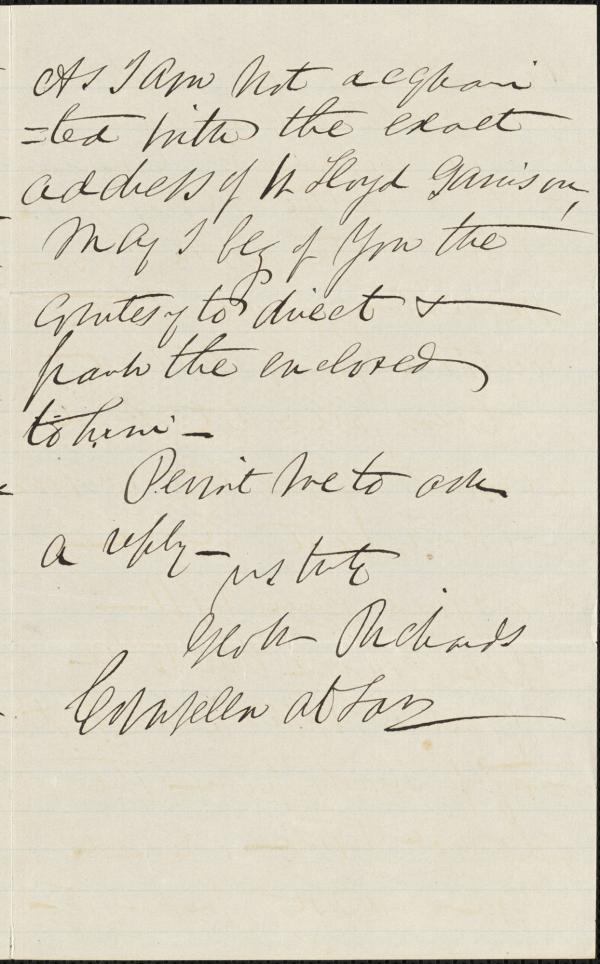 As I am not acquain
=ted with the exact
address of W Lloyd Garrison,
May I beg of You the
courtesy to direct &
frank the enclosed
to him -
Permit me to ask
a reply -
yrs truly
Geo W Richards
Counsellor at Law